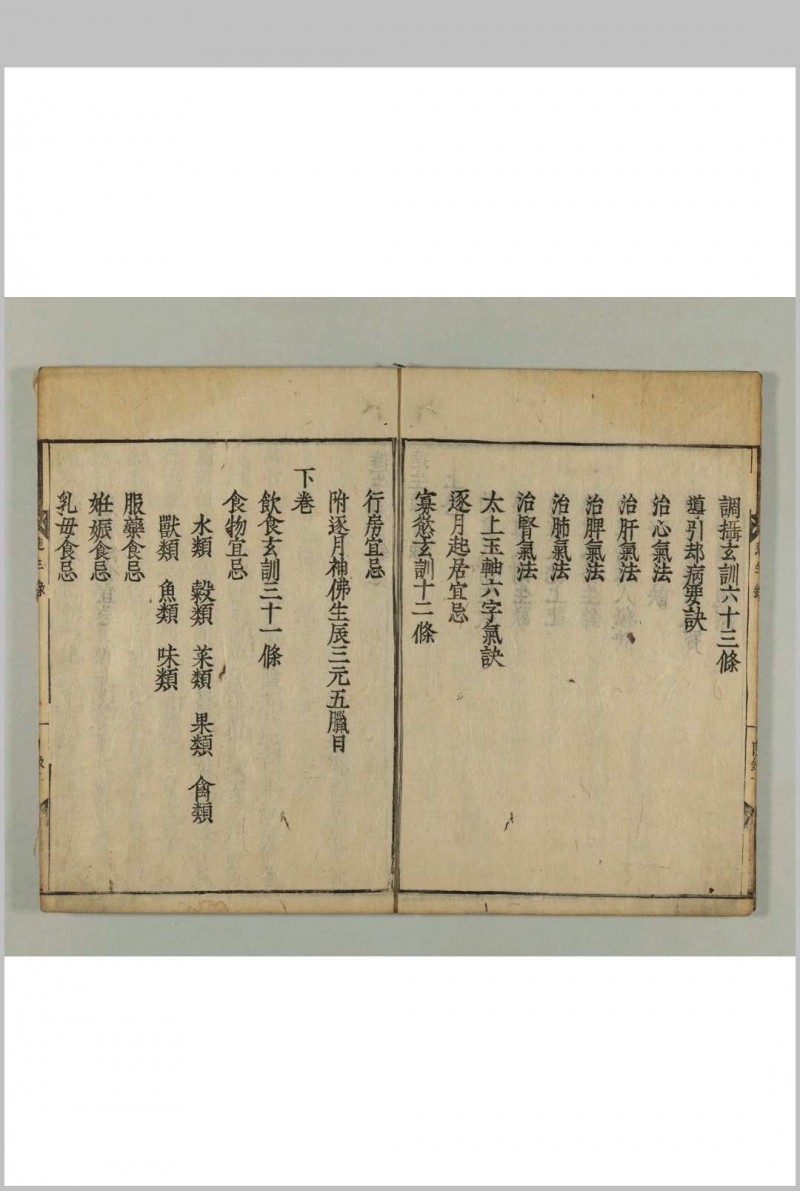 調攝玄訓六十三條
導引却病要訣
治心氣法
治肝氣法
治脾氣法
治肺氣法
治腎氣法
太上玉軸六字氣訣
逐月起居宜忌
寡慾玄訓十二條
行房宜忌
附逐月神佛生辰三元五臘日
下卷
飲食玄訓三十一條
食物宜忌
水類 穀類 菜類 果類 禽類
獸類 魚類 味類
服藥食忌
妊娠食忌
乳母食忌